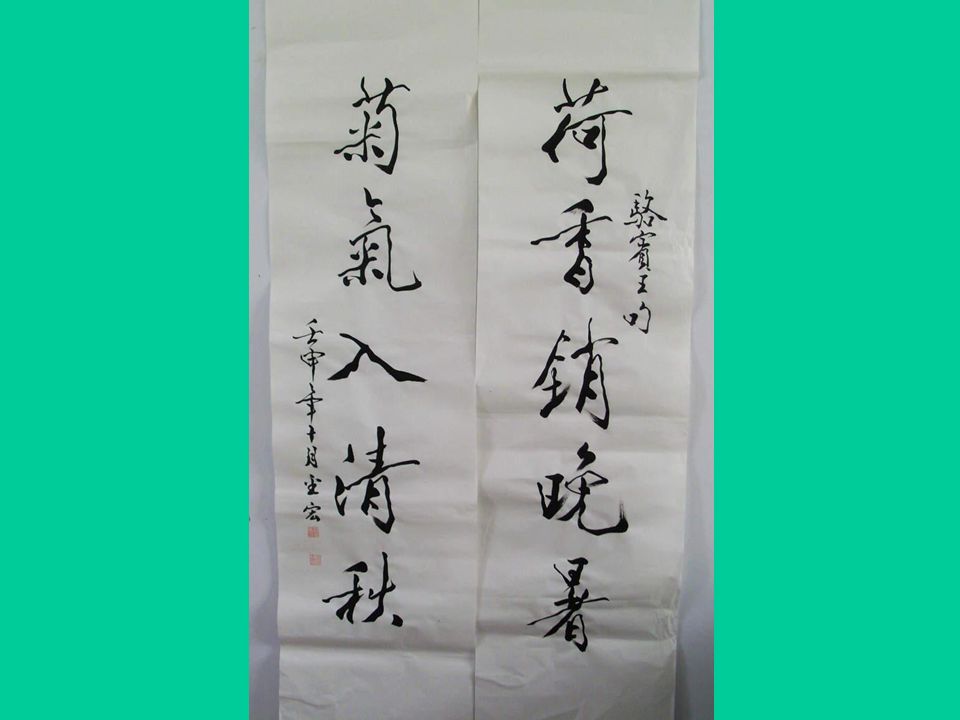 荷香銷晚暑
駱賓王句
菊氣入清秋
壬申年十月